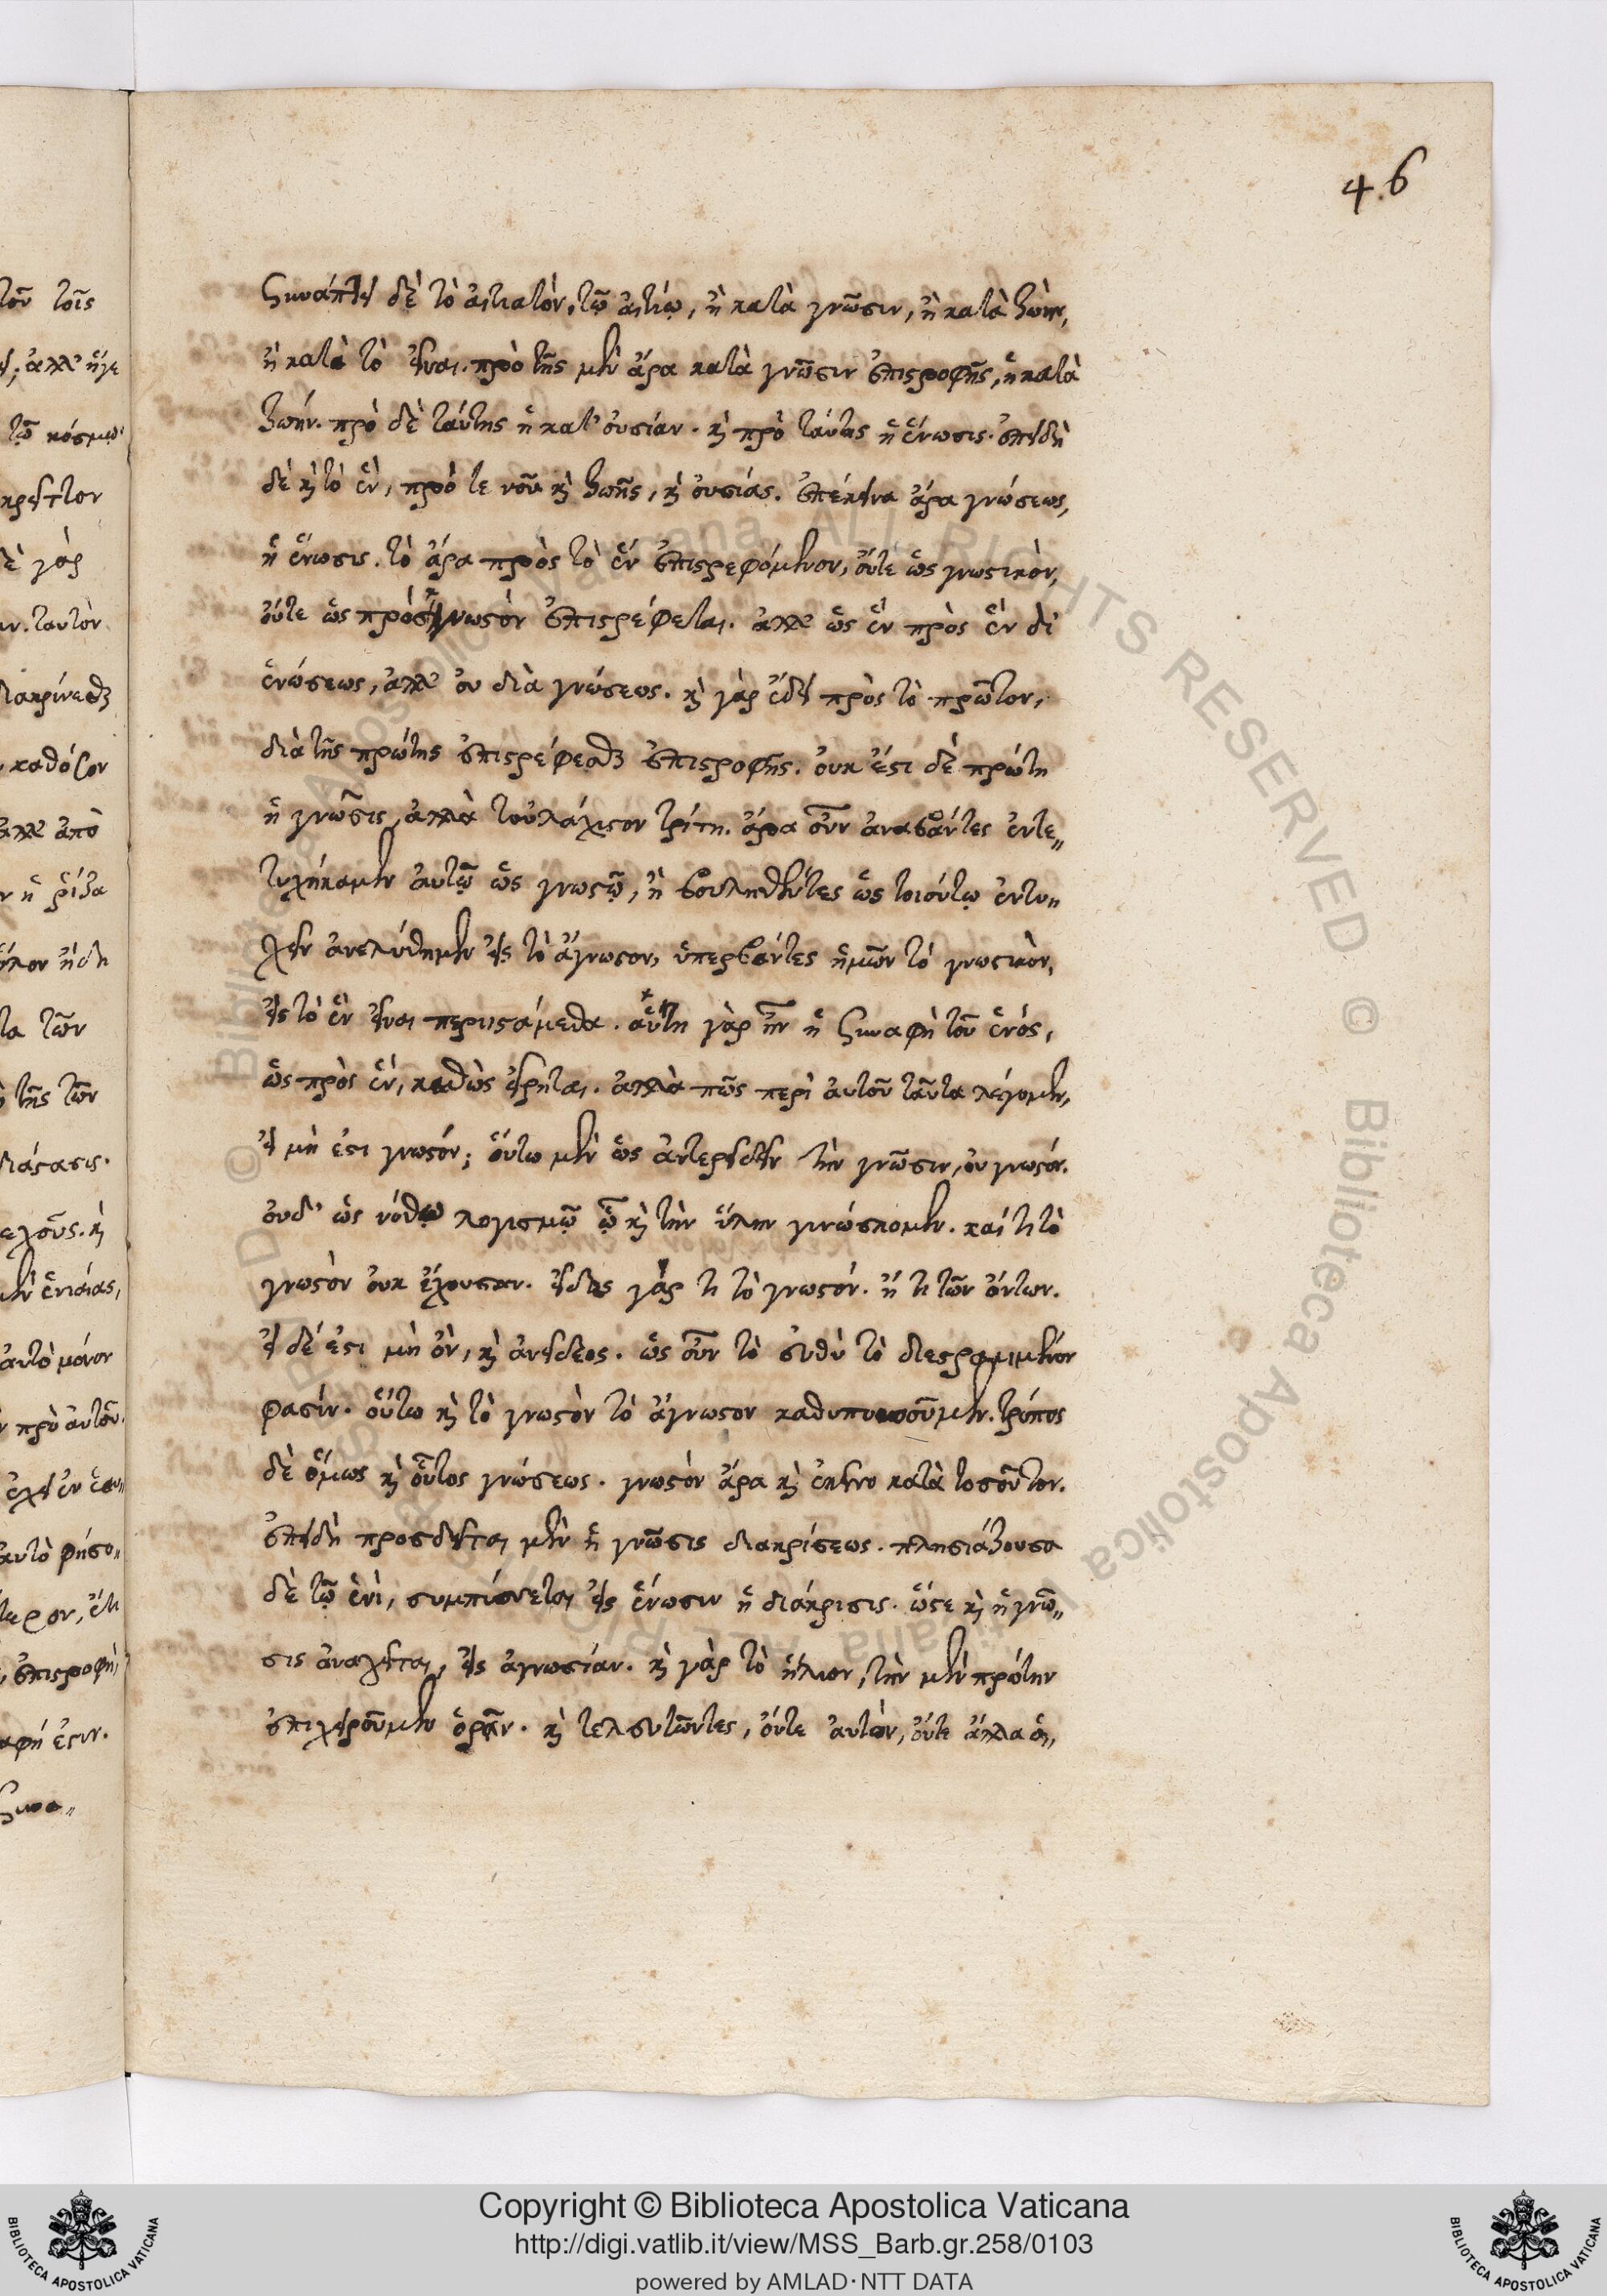 4.6
συνάπτει δὲ τὸ αἰτιατὸν, τῷ αἰτίῳ, ἢ κατὰ γνῶσιν, ἢ κατὰ ζωὴν,
ἢ κατὰ τὸ εἶναι. πρὸ τῆς μὲν ἄρα κατὰ γνῶσιν ἐπιστροφῆς, ἡ κατὰ
ζωήν. πρὸ δὲ ταύτης ἡ κατ' οὐσίαν. καὶ πρὸ ταύτης ἡ ἕνωσις. ἐπειδὴ
δὲ καὶ τὸ ἓν, πρό τε νοῦ καὶ ζωῆς, καὶ οὐσίας. ἐπέκεινα ἄρα γνώσεως,
ἡ ἕνωσις. τὸ ἄρα πρὸς τὸ ἓν ἐπιστρεφόμενον, οὔτε ὡς γνωστικὸν,
οὔτε ὡς πρὸς γνωστὸν ἐπιστρέφεται. ἀλλ' ὡς ἓν πρὸς ἓν δι'
ἑνώσεως, ἀλλ' οὐ διὰ γνώσεως. καὶ γὰρ ἔδει πρὸς τὸ πρῶτον,
διὰ τῆς πρώτης ἐπιστρέφεσθαι ἐπιστροφῆς. οὐκ ἔστι δὲ πρώτη
ἡ γνῶσις, ἀλλὰ τοὐλάχιστον τρίτη. ἄρα οὖν ἀναβάντες ἐντε„
τυχήκαμεν αὐτῷ ὡς γνωστῷ, ἢ βουληθέντες ὡς τοιούτῳ ἐντυ„
χεῖν ἀνελύθημεν εἰς τὸ ἄγνωστον, ὑπερβάντες ἡμῶν τὸ γνωστικὸν,
εἰς τὸ ἓν εἶναι περιιστάμεθα. αὕτη γὰρ ἦν ἡ συναφὴ τοῦ ἑνός,
ὡς πρὸς ἕν, καθὼς εἴρηται. ἀλλὰ πῶς περὶ αὐτοῦ ταῦτα λέγομεν,
εἰ μή ἐστι γνωστόν; οὕτω μὲν ὡς ἀντερείδειν τὴν γνῶσιν, οὐ γνωστόν.
οὐδ' ὡς νόθῳ λογισμῷ ᾧ καὶ τὴν ὕλην γινώσκομεν. καί τι τὸ
γνωστὸν οὐκ ἔχουσαν. εἶδος γάρ τι τὸ γνωστόν. ἤ τι τῶν ὄντων.
εἰ δέ ἐστι μὴ ὂν, καὶ ἀνείδεος. ὡς οὖν τὸ εὐθὺ τὸ διεστραμμένον
φασίν. οὕτω καὶ τὸ γνωστὸν τὸ ἄγνωστον καθυπονοοῦμεν. τρόπος
δὲ ὅμως καὶ οὗτος γνώσεως. γνωστὸν ἄρα καὶ ἐκεῖνο κατὰ τοσοῦτον.
ἐπειδὴ προσδεῖται μὲν ἡ γνῶσις διακρίσεως. πλησιάζουσα
δὲ τῷ ἑνὶ, συμπίπνεται εἰς ἕνωσιν ἡ διάκρισις. ὥστε καὶ ἡ γνῶ„
σις ἀναχεῖται, εἰς ἀγνωσίαν. καὶ γὰρ τὸ ἥλιον, τὴν μὲν πρώτην
ἐπιχειροῦμεν ὁρᾶν. καὶ τελευτῶντες, οὔτε αὐτὸν, οὔτε ἄλλα ὁ„
Copyright © Biblioteca Apostolica Vaticana
http://digi.vatlib.it/view/MSS_Barb.gr.258/0103
powered by AMLAD·NTT DATA